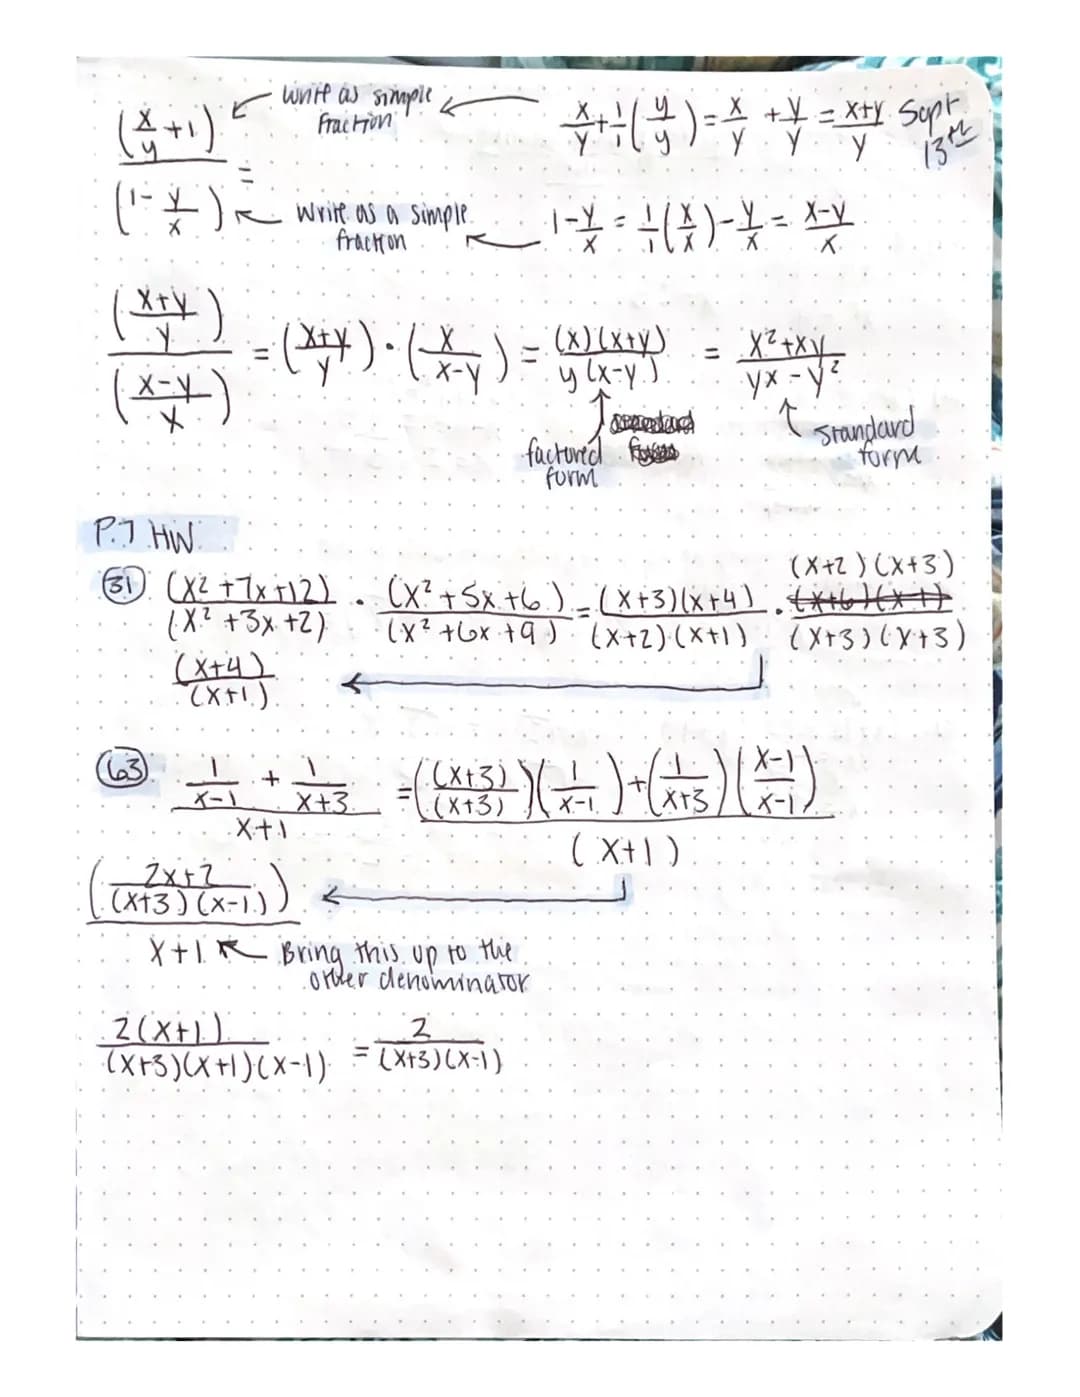 (x/y + 1) ← Write as simple fraction ← x/y + 1/1 (y/y) = x/y + y/y = x+y/y Sept 13th
=
(1 - y/x) ← Write as a simple fraction ← 1 - y/x = 1/1 (x/x) - y/x = x-y/x
(x+y/y) / (x-y/x) = (x+y/y) · (x/x-y) = (x)(x+y) / y(x-y) = x²+xy / yx-y²
↑ factored form
↑ standard form
P.7 HW
(31) (x²+7x+12)/(x²+3x+2) · (x²+5x+6)/(x²+6x+9) = (x+3)(x+4)/(x+2)(x+1) · (x+2)(x+3)/(x+3)(x+3)
(x+4)/(x+1) ←
(63) 1/x-1 + 1/x+3 / x+1 = ((x+3)/(x+3))(1/x-1) + (1/x+3)(x-1/x-1) / (x+1)
(2x+2/(x+3)(x-1)) ←
x+1 ← Bring this up to the
other denominator
2(x+1)/(x+3)(x+1)(x-1) = 2/(x+3)(x-1)